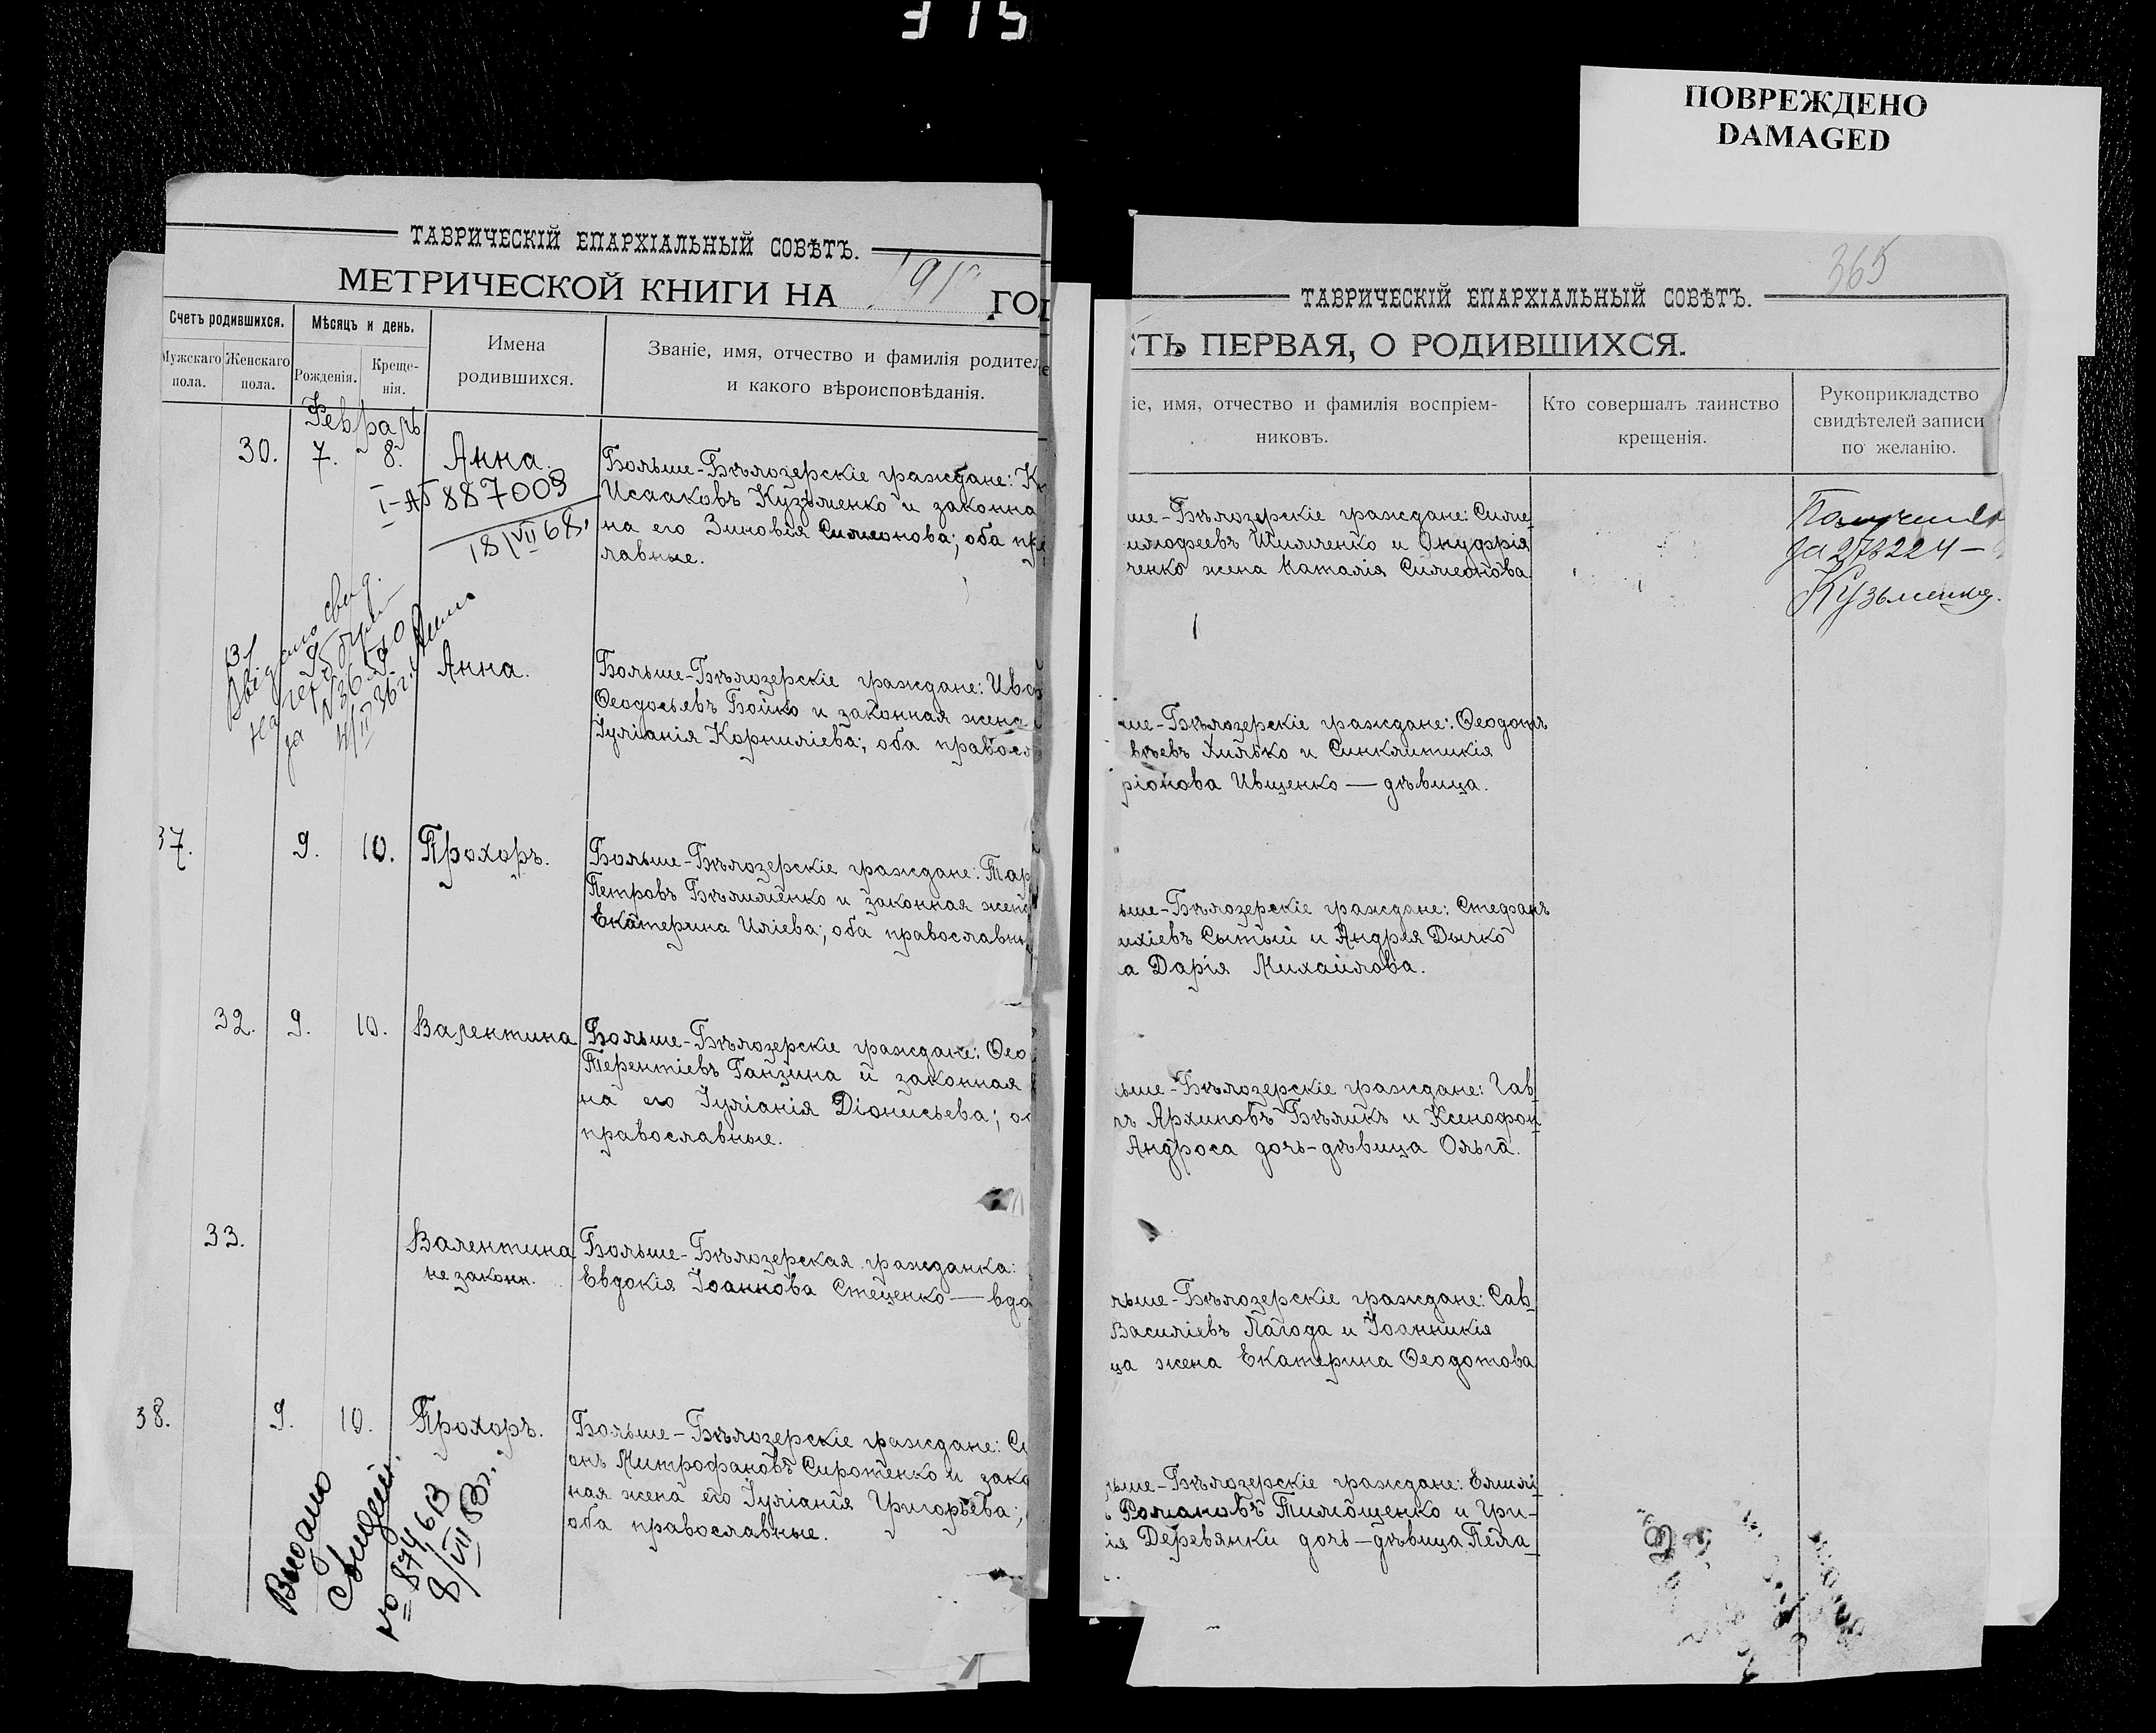 315
ПОВРЕЖДЕНО
DAMAGED
ТАВРИЧЕСКІЙ ЕПАРХІАЛЬНЫЙ СОВѢТЪ.
МЕТРИЧЕСКОЙ КНИГИ НА 191 ГОД
Счетъ родившихся.
Мужскаго пола.
Женскаго пола.
Мѣсяцъ и день.
Рожденія.
Крещенія.
Имена
родившихся.
Званіе, имя, отчество и фамилія родителе
и какого вѣроисповѣданія.
Февраль
30. 7. 8. Анна.
I-АЛ 887009
18/VII 68.
Больше-Бѣлозерскіе граждане:
Исааковъ Кузьменко и законна
на его Зиновія Симеонова; оба пра
лавные.
31
Анна.
Больше-Бѣлозерскіе граждане: Ив
Ѳеодосьевъ Бойко и законная жена
Іуліанія Корниліева; оба правосл
37. 9. 10. Прохоръ.
Больше-Бѣлозерскіе граждане: Тар
Петровъ Бѣлименко и законная жена
Екатерина Иліева; оба православны
32. 9. 10. Валентина
Больше-Бѣлозерскіе граждане: Ѳео
Терентіевъ Ганзина и законная
на его Іуліанія Діонисьева; об
православные.
33. Валентина
не законн.
Больше-Бѣлозерская гражданка:
Евдокія Іоаннова Стеценко — вдо
38. 9. 10. Прохоръ.
Больше-Бѣлозерскіе граждане: Си
онъ Митрофановъ Сиротенко и зако
ная жена его Іуліанія Григорьева;
оба православные.
Выдано
Свидет.
№ 874613
8/VII 53г.
365
ТАВРИЧЕСКІЙ ЕПАРХІАЛЬНЫЙ СОВѢТЪ.
СТЬ ПЕРВАЯ, О РОДИВШИХСЯ.
іе, имя, отчество и фамилія воспріем-
никовъ.
Кто совершалъ таинство
крещенія.
Рукоприкладство
свидѣтелей записи
по желанію.
ше-Бѣлозерскіе граждане: Симе
имофеевъ Шимченко и Онуфрія
ченко жена Наталія Симеонова.
Кузьменко.
ше-Бѣлозерскіе граждане: Ѳеодотъ
вѣевъ Хилько и Синклитикія
ріонова Ивщенко — дѣвица.
ьше-Бѣлозерскіе граждане: Стефанъ
ихіевъ Сытый и Андрея Дычко
а Дарія Михайлова.
ьше-Бѣлозерскіе граждане: Гав
лъ Архиповъ Бѣликъ и Ксенофон
Андроса дочь-дѣвица Ольга.
льше-Бѣлозерскіе граждане: Сав
Василіевъ Лагода и Іоанникія
ца жена Екатерина Ѳеодотова
льше-Бѣлозерскіе граждане: Емилі
Романовъ Тимошенко и Гри-
ія Деревянки дочь-дѣвица Пела